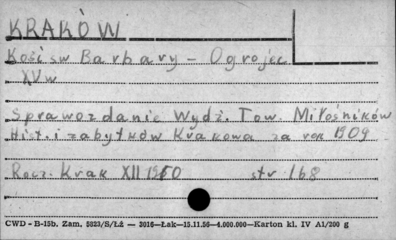 KRAKÓW
Kość św Barbary - Ogrojec
XV w
Sprawozdanie Wydż. Tow. Miłośników
Hist. i zabytków Krakowa za rok 1909
Rocz. Krak XII 1910 str 168
CWD - B-15b, Zam. 5823/S/Łż — 2016—Łak—15.11.56—4.000.000—Karton kl. IV A1/200 g